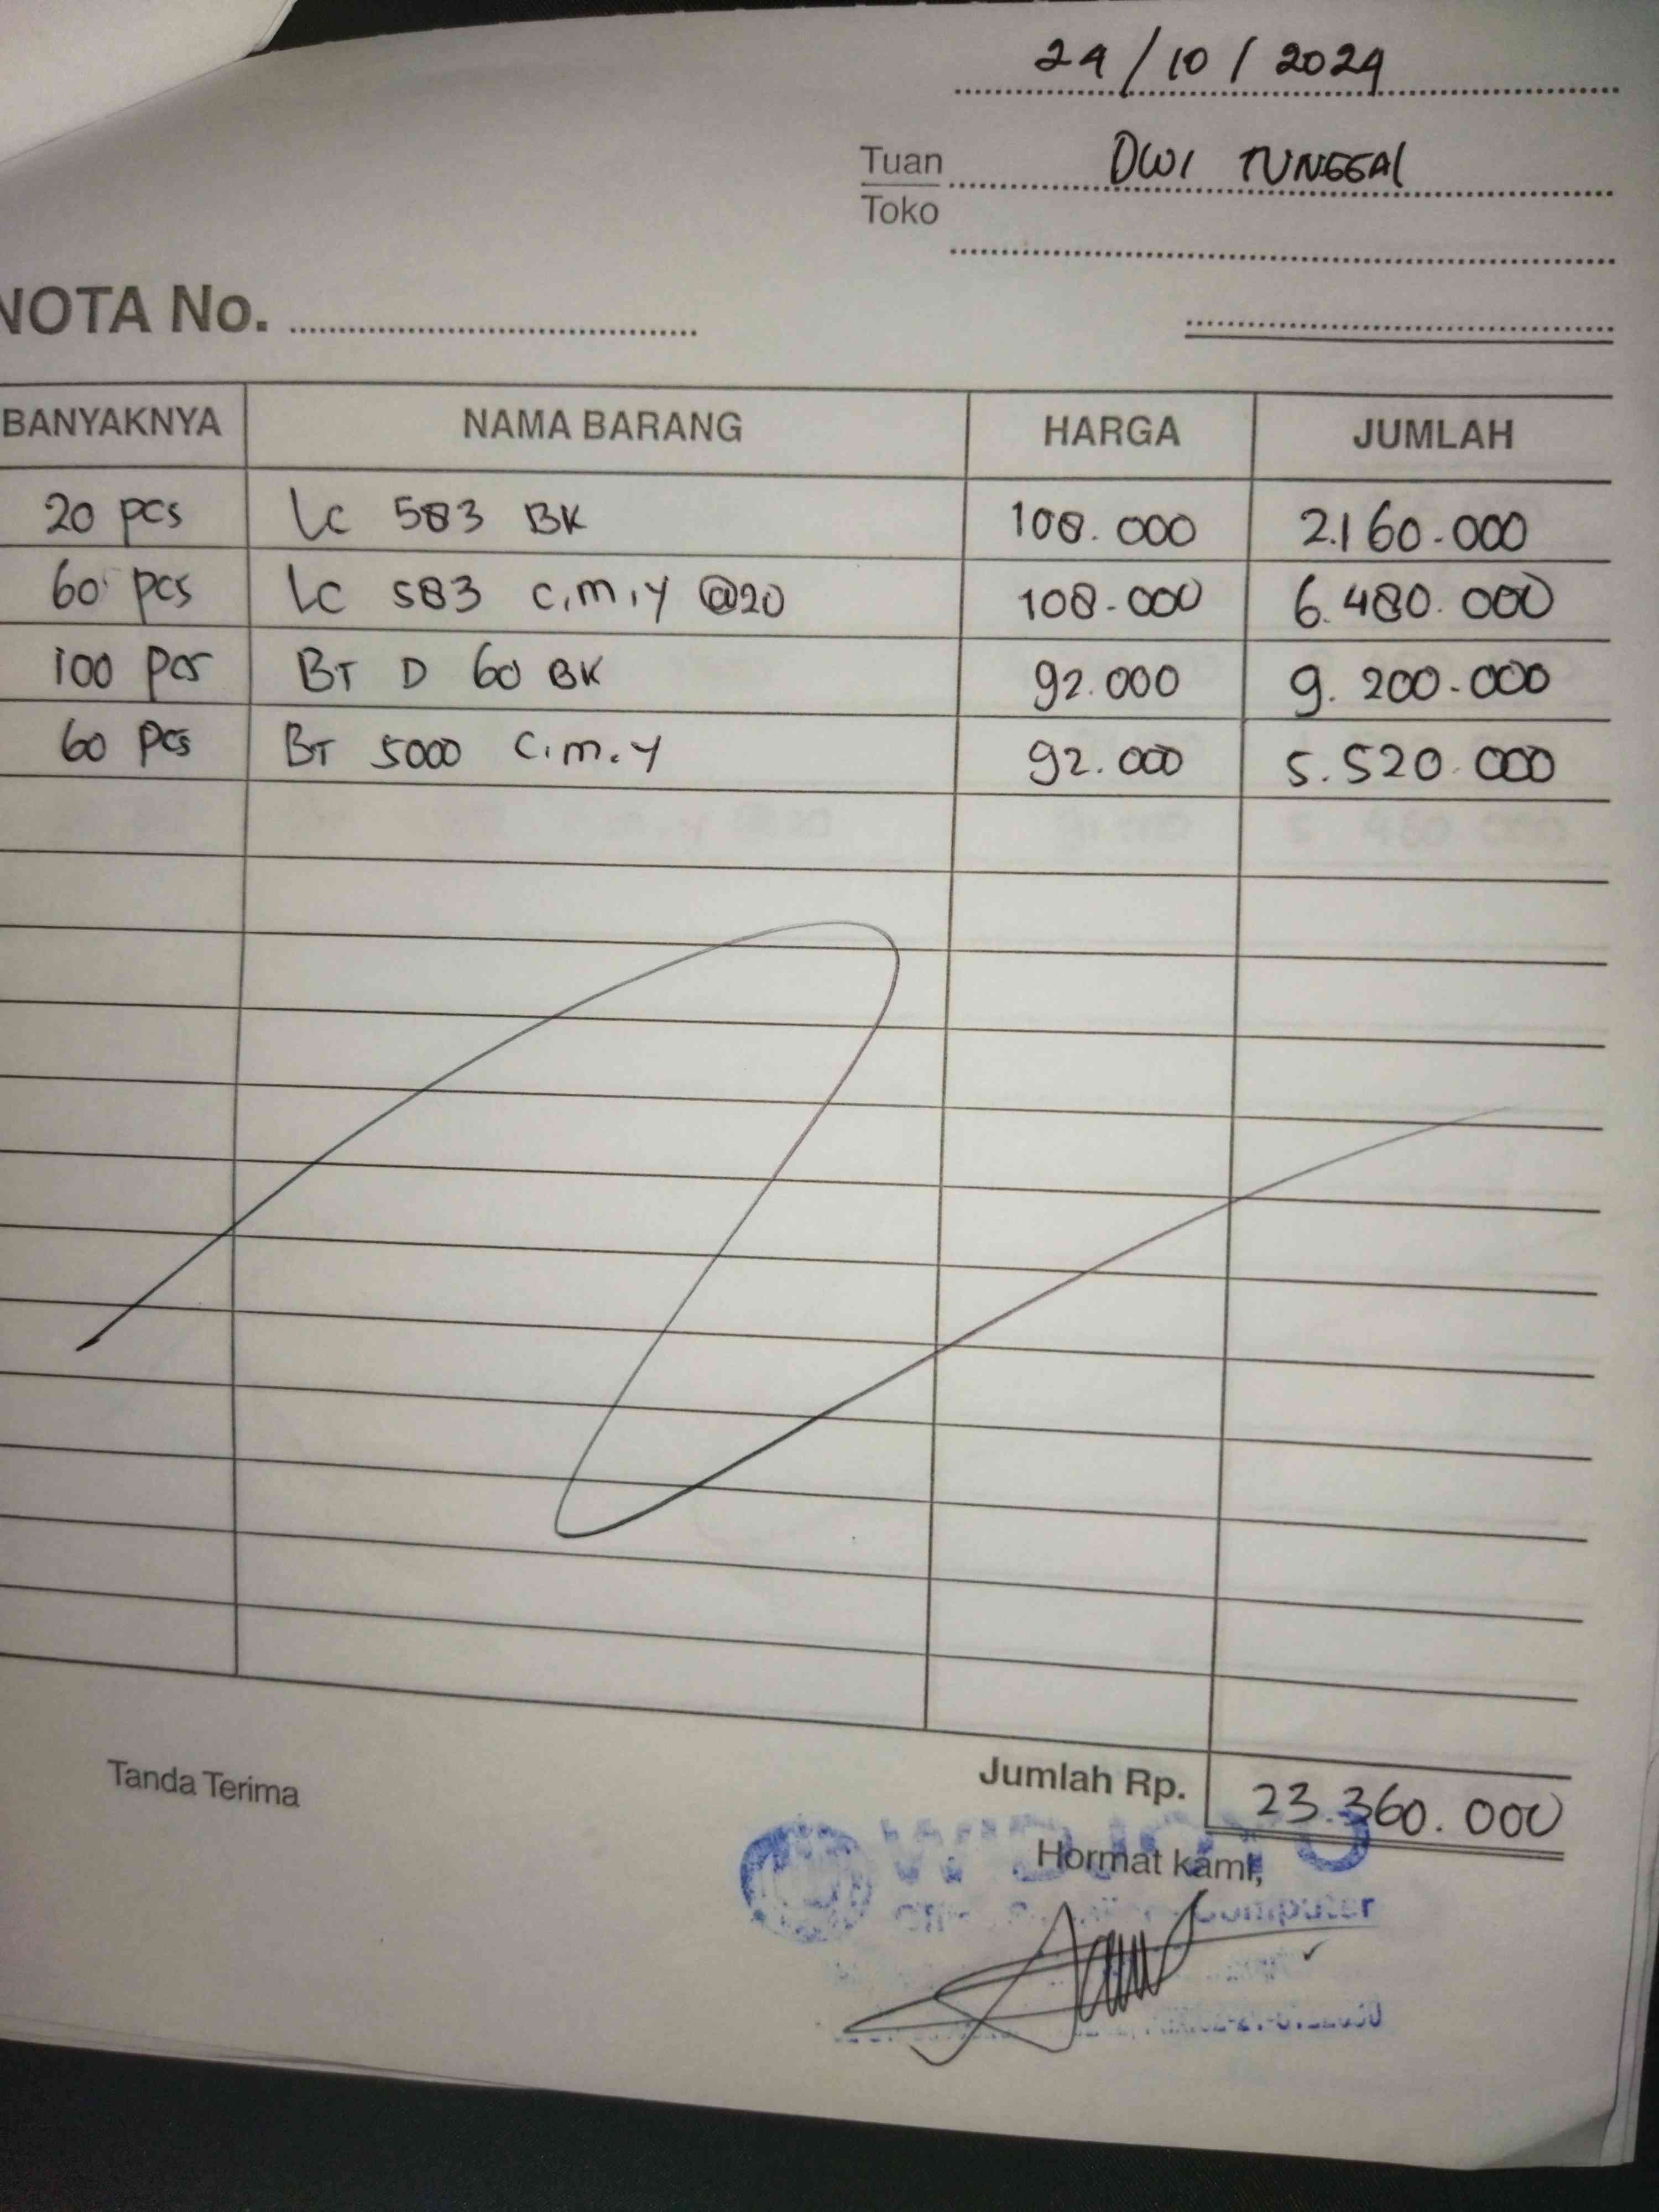 24/10/2024
Tuan DWI TUNGGAL
Toko
NOTA No.
BANYAKNYA NAMA BARANG HARGA JUMLAH
20 pcs LC 583 BK 108.000 2.160.000
60 pcs LC 583 C,M,Y @20 108.000 6.480.000
100 pcs BT D 60 BK 92.000 9.200.000
60 pcs BT 5000 C.M.Y 92.000 5.520.000
Tanda Terima Jumlah Rp. 23.360.000
Hormat kami,
Computer